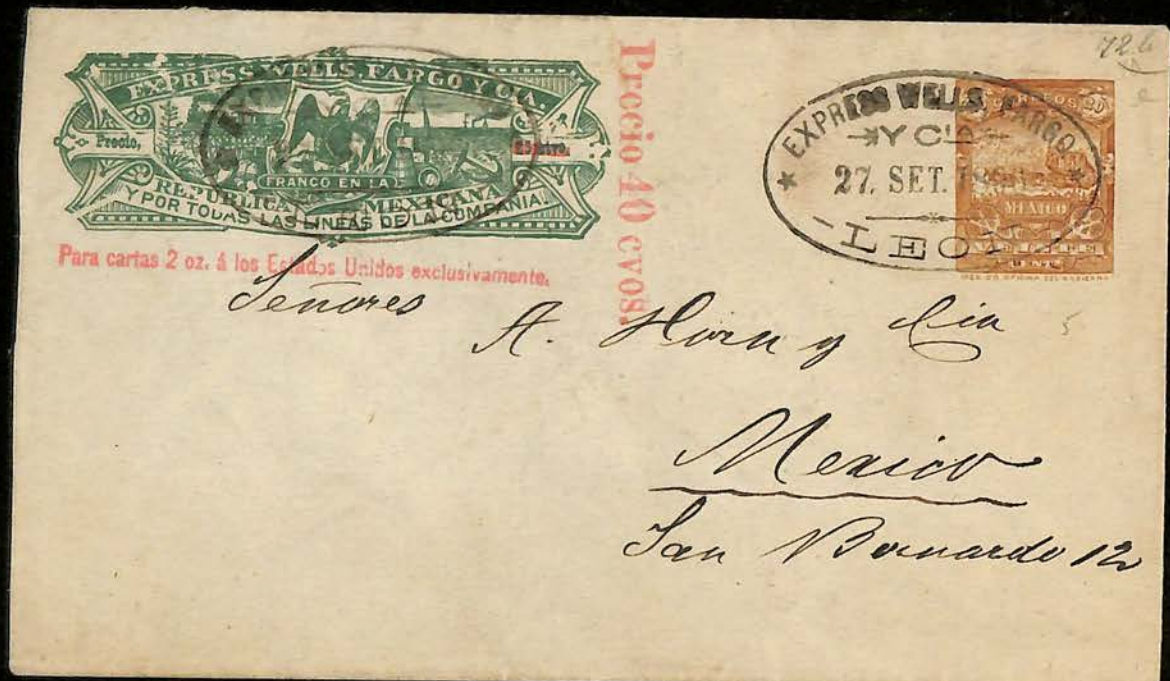 EXPRESS WELLS, FARGO Y CIA.
Precio,
FRANCO EN LA
REPUBLICA MEXICANA
Y POR TODAS LAS LINEAS DE LA COMPAÑIA.
Para cartas 2 oz. á los Estados Unidos exclusivamente.
Precio 40 cvos.
EXPRESS WELLS, FARGO
Y CIA
27. SET.
LEON
MEXICO
Señores
A. Horn y Cia
Mexico
San Bernardo 12